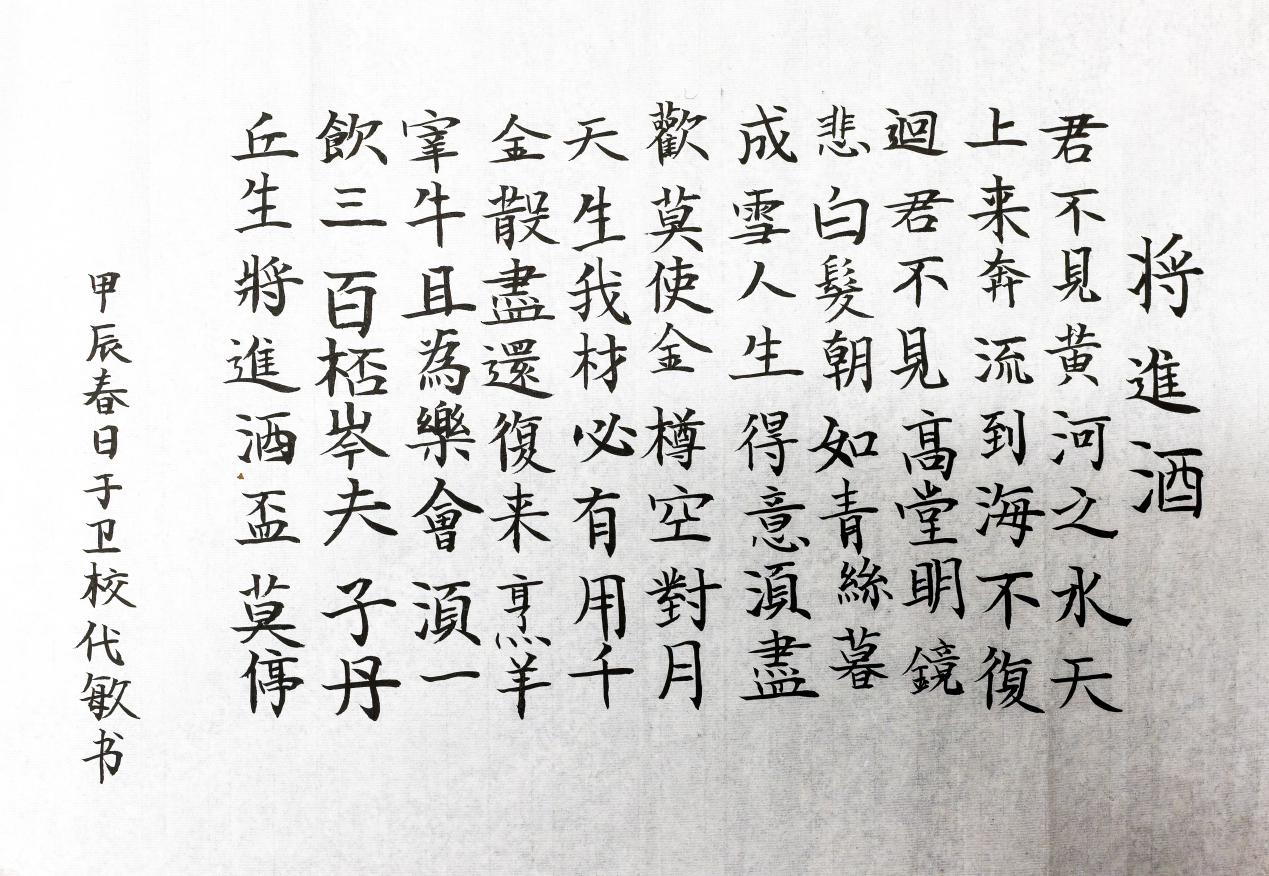 将進酒
君不見黄河之水天
上来奔流到海不復
迴君不見高堂明鏡
悲白髮朝如青絲暮
成雪人生得意須盡
歡莫使金樽空對月
天生我材必有用千
金散盡還復来烹羊
宰牛且為樂會須一
飲三百桮岑夫子丹
丘生將進酒盃莫停
甲辰春日于卫校代敏书